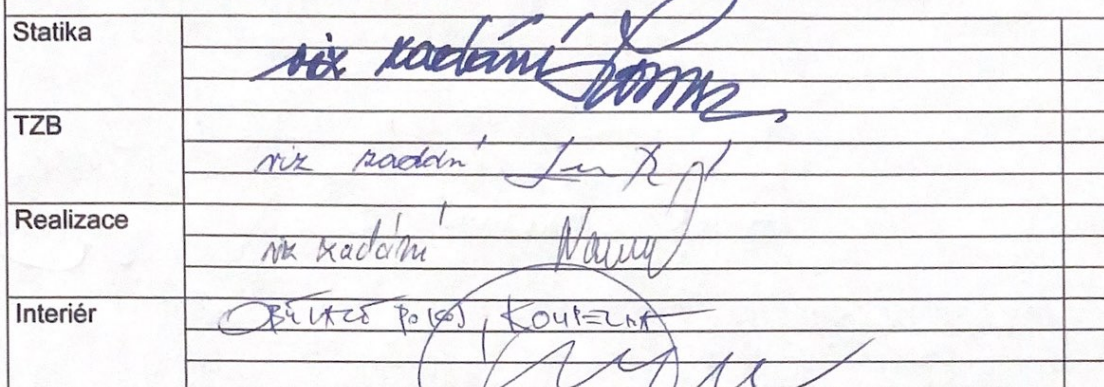 Statika
viz zadání
TZB
viz zadání
Realizace
viz zadání
Interiér
OBÝVACÍ POKOJ, KOUPELNA